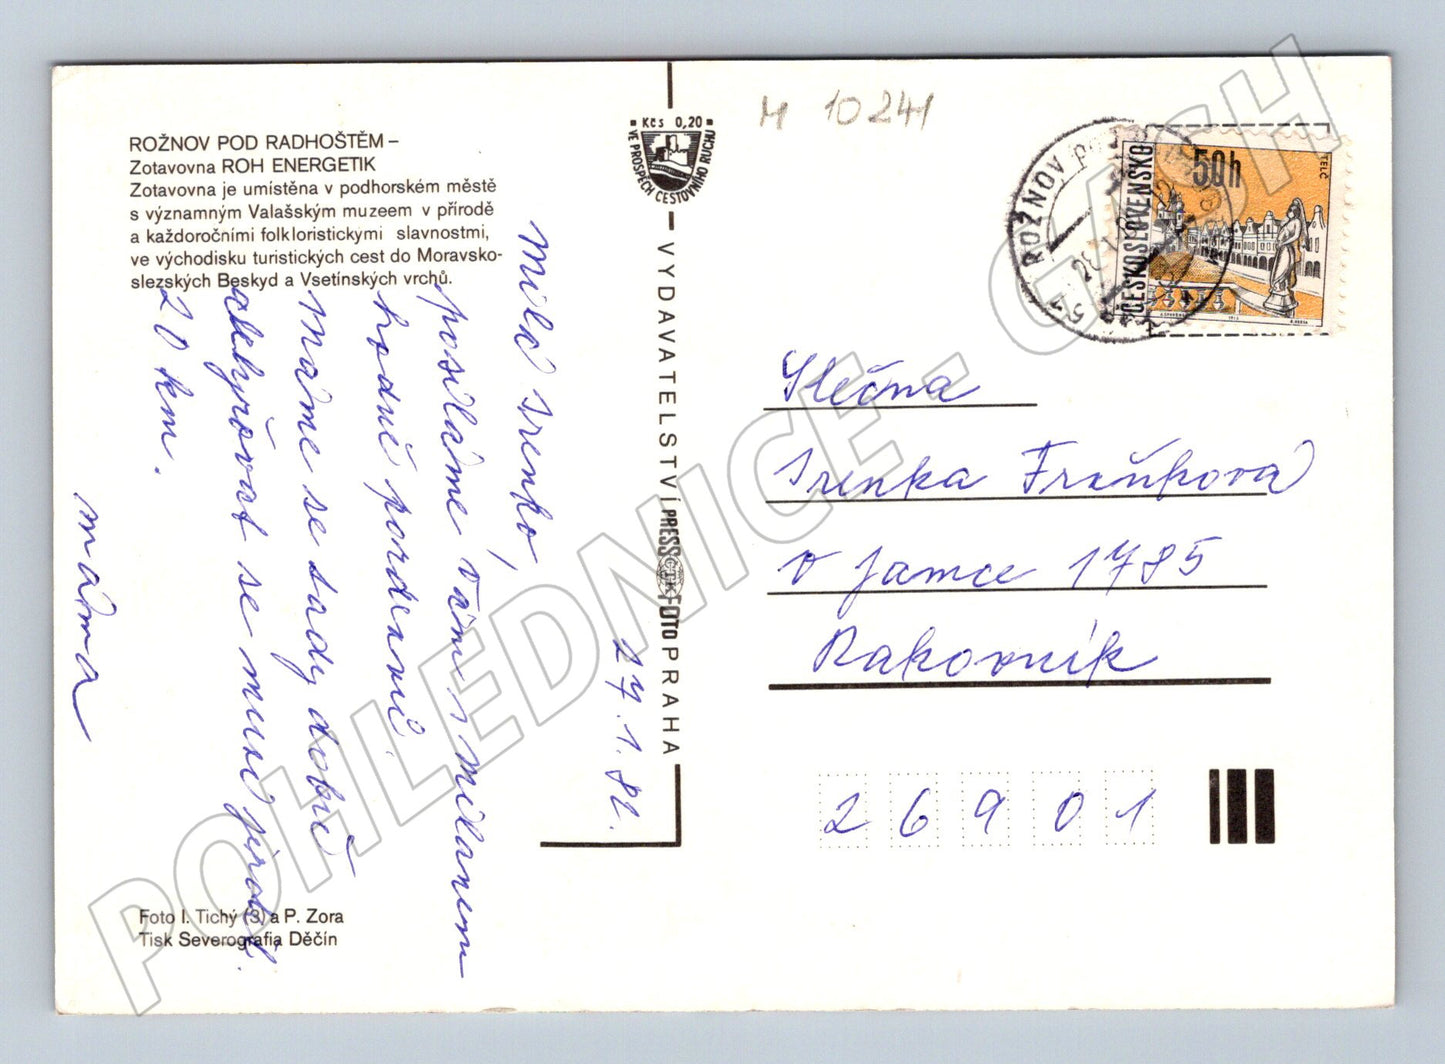 ROŽNOV POD RADHOŠTĚM –
Zotavovna ROH ENERGETIK
Zotavovna je umístěna v podhorském městě
s významným Valašským muzeem v přírodě
a každoročními folkloristickými slavnostmi,
ve východisku turistických cest do Moravsko-
slezských Beskyd a Vsetínských vrchů.
Milá Irenko,
posíláme Vám s Milanem
hodně pozdravů.
Máme se tady dobře
20 km.
máma
27.1.82.
Foto I. Tichý (3) a P. Zora
Tisk Severografia Děčín
Kčs 0,20
VE PROSPĚCH CESTOVNÍHO RUCHU
VYDAVATELSTVÍ PRESSFOTO PRAHA
ČTK
M 10241
ROŽNOV POD
ČESKOSLOVENSKO
50h
TELČ
Slečna
Irenka Fraňková
V Jamce 1785
Rakovník
26901
POHLEDNICE - CASH